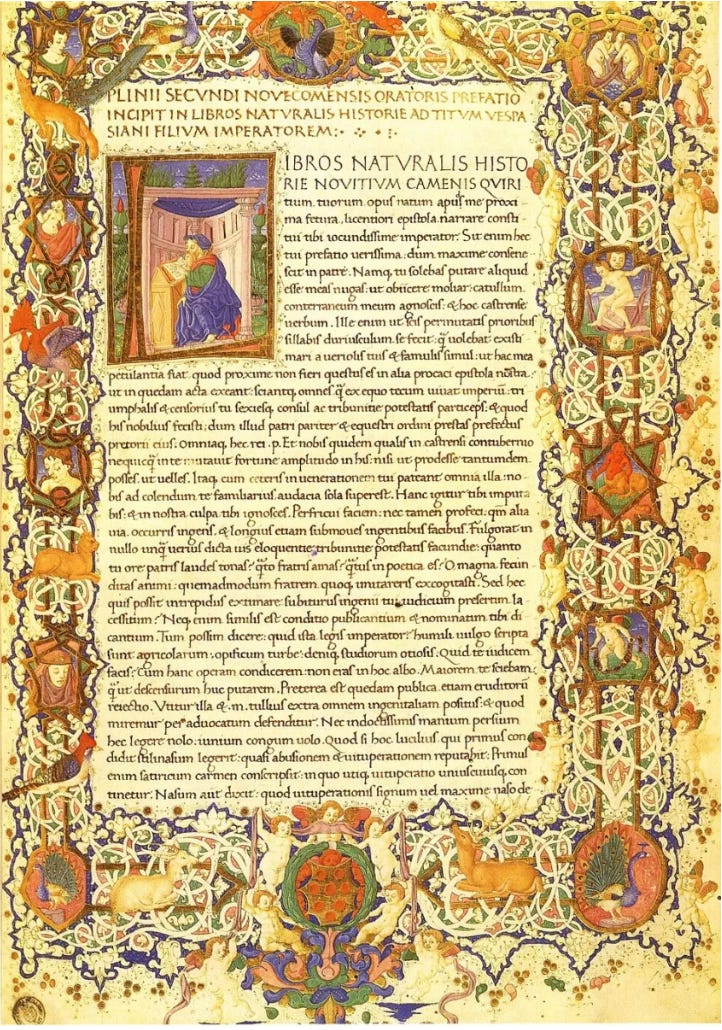 PLINII SECVNDI NOVECOMENSIS ORATORIS PREFATIO
INCIPIT IN LIBROS NATVRALIS HISTORIE AD TITVM VESPA
SIANI FILIVM IMPERATOREM:
LIBROS NATVRALIS HISTO
RIE NOVITIVM CAMENIS QVIRI
tium tuorum opus natum apud me proxi
ma fetura, licentiori epistola narrare consti-
tui tibi iocundissime imperator. Sit enim hec
tui prefatio uerissima, dum maxime consene
scit in patre. Namq, tu solebas putare aliquid
esse meas nugas: ut obiicere moliar catullum
conterraneum meum agnoscis: & hoc castrense
uerbum. Ille enim ut scis permutatis prioribus
sillabis duriusculum se fecit: q̃ uolebat existi
mari a ueriolis tuis & famulis simul: ut hac mea
petulantia fiat quod proxime non fieri questus es in alia procaci epistola nostra.
ut in quedam acta exeant: sciantq, omnes q̃ ex equo tecum uiuat imperiũ: tri
umphalis & censorius tu sexiesq, consul ac tribunitie potestatis particeps: & quod
his nobilius fecisti: dum illud patri pariter & equestri ordini prestas prefectus
pretorii eius. Omniaq, hec rei .p. Et nobis quidem qualis in castrensi contubernio
nequicq̃ in te mutauit fortune amplitudo in his: nisi ut prodesse tantumdem
posses, ut uelles. Itaq, cum ceteris in uenerationem tui pateant omnia illa: no-
bis ad colendum te familiarius audacia sola superest. Hanc igitur tibi imputa
bis: & in nostra culpa tibi ignosces. Perfricui faciem: nec tamen profeci: qm̃ alia
uia occurris ingens, & longius etiam submoues ingentibus facibus. Fulgorat in
nullo unq̃ uerius dicta uis eloquentie: tribunitie potestatis facundie: quanto
tu ore patris laudes tonas: q̃to fratris amas: q̃tus in poetica es: O magna fecun
ditas animi: quemadmodum fratrem quoq, imitareris excogitasti. Sed hec
quis possit intrepidus extimare: subiturus ingenii tui iudicium presertim la
cessitum: Neq, enim similis est conditio publicantium & nominatim tibi di
cantium. Tum possim dicere: quid ista legis imperator: humili uulgo scripta
sunt: agricolarum, opificum turbe: deniq, studiorum otiosis. Quid te iudicem
facis: Cum hanc operam condicerem: non eras in hoc albo. Maiorem te sciebam
q̃ ut descensurum huc putarem. Preterea est quedam publica etiam eruditorũ
reiectio. Vtitur illa & .m. tullius extra omnem ingenii aliam positus: & quod
miremur per aduocatum defenditur. Nec indoctissimis manium persium
hec legere nolo: iunium congum uolo. Quod si hoc lucilius qui primus con
didit stili nasum legerit: quasi abusionem & uituperationem reputabit: Primus
enim satiricum carmen conscripsit: in quo utiq, uituperatio uniuscuiusq, con
tinetur. Nasum aut dixit: quod uituperationis signum uel maxime naso de